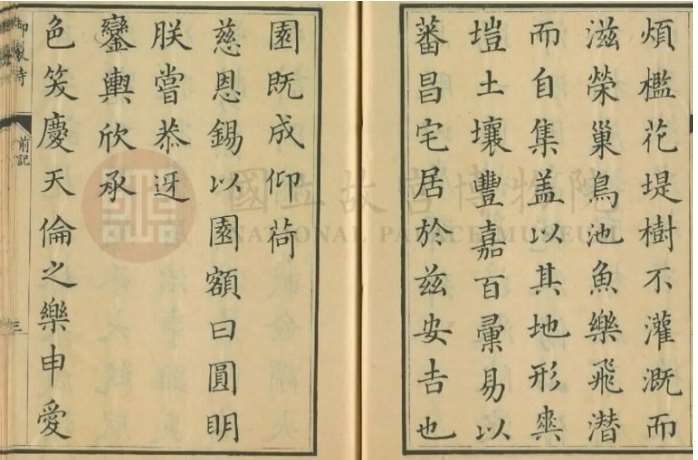 煩檻花堤樹不灌溉而
滋榮巢鳥池魚樂飛潛
而自集盖以其地形爽
塏土壤豐嘉百彚易以
蕃昌宅居於兹安吉也
園既成仰荷
慈恩錫以園額曰圓明
朕嘗恭迓
鑾輿欣承
色笑慶天倫之樂申愛
前記
三
國立故宮博物院
NATIONAL PALACE MUSEUM